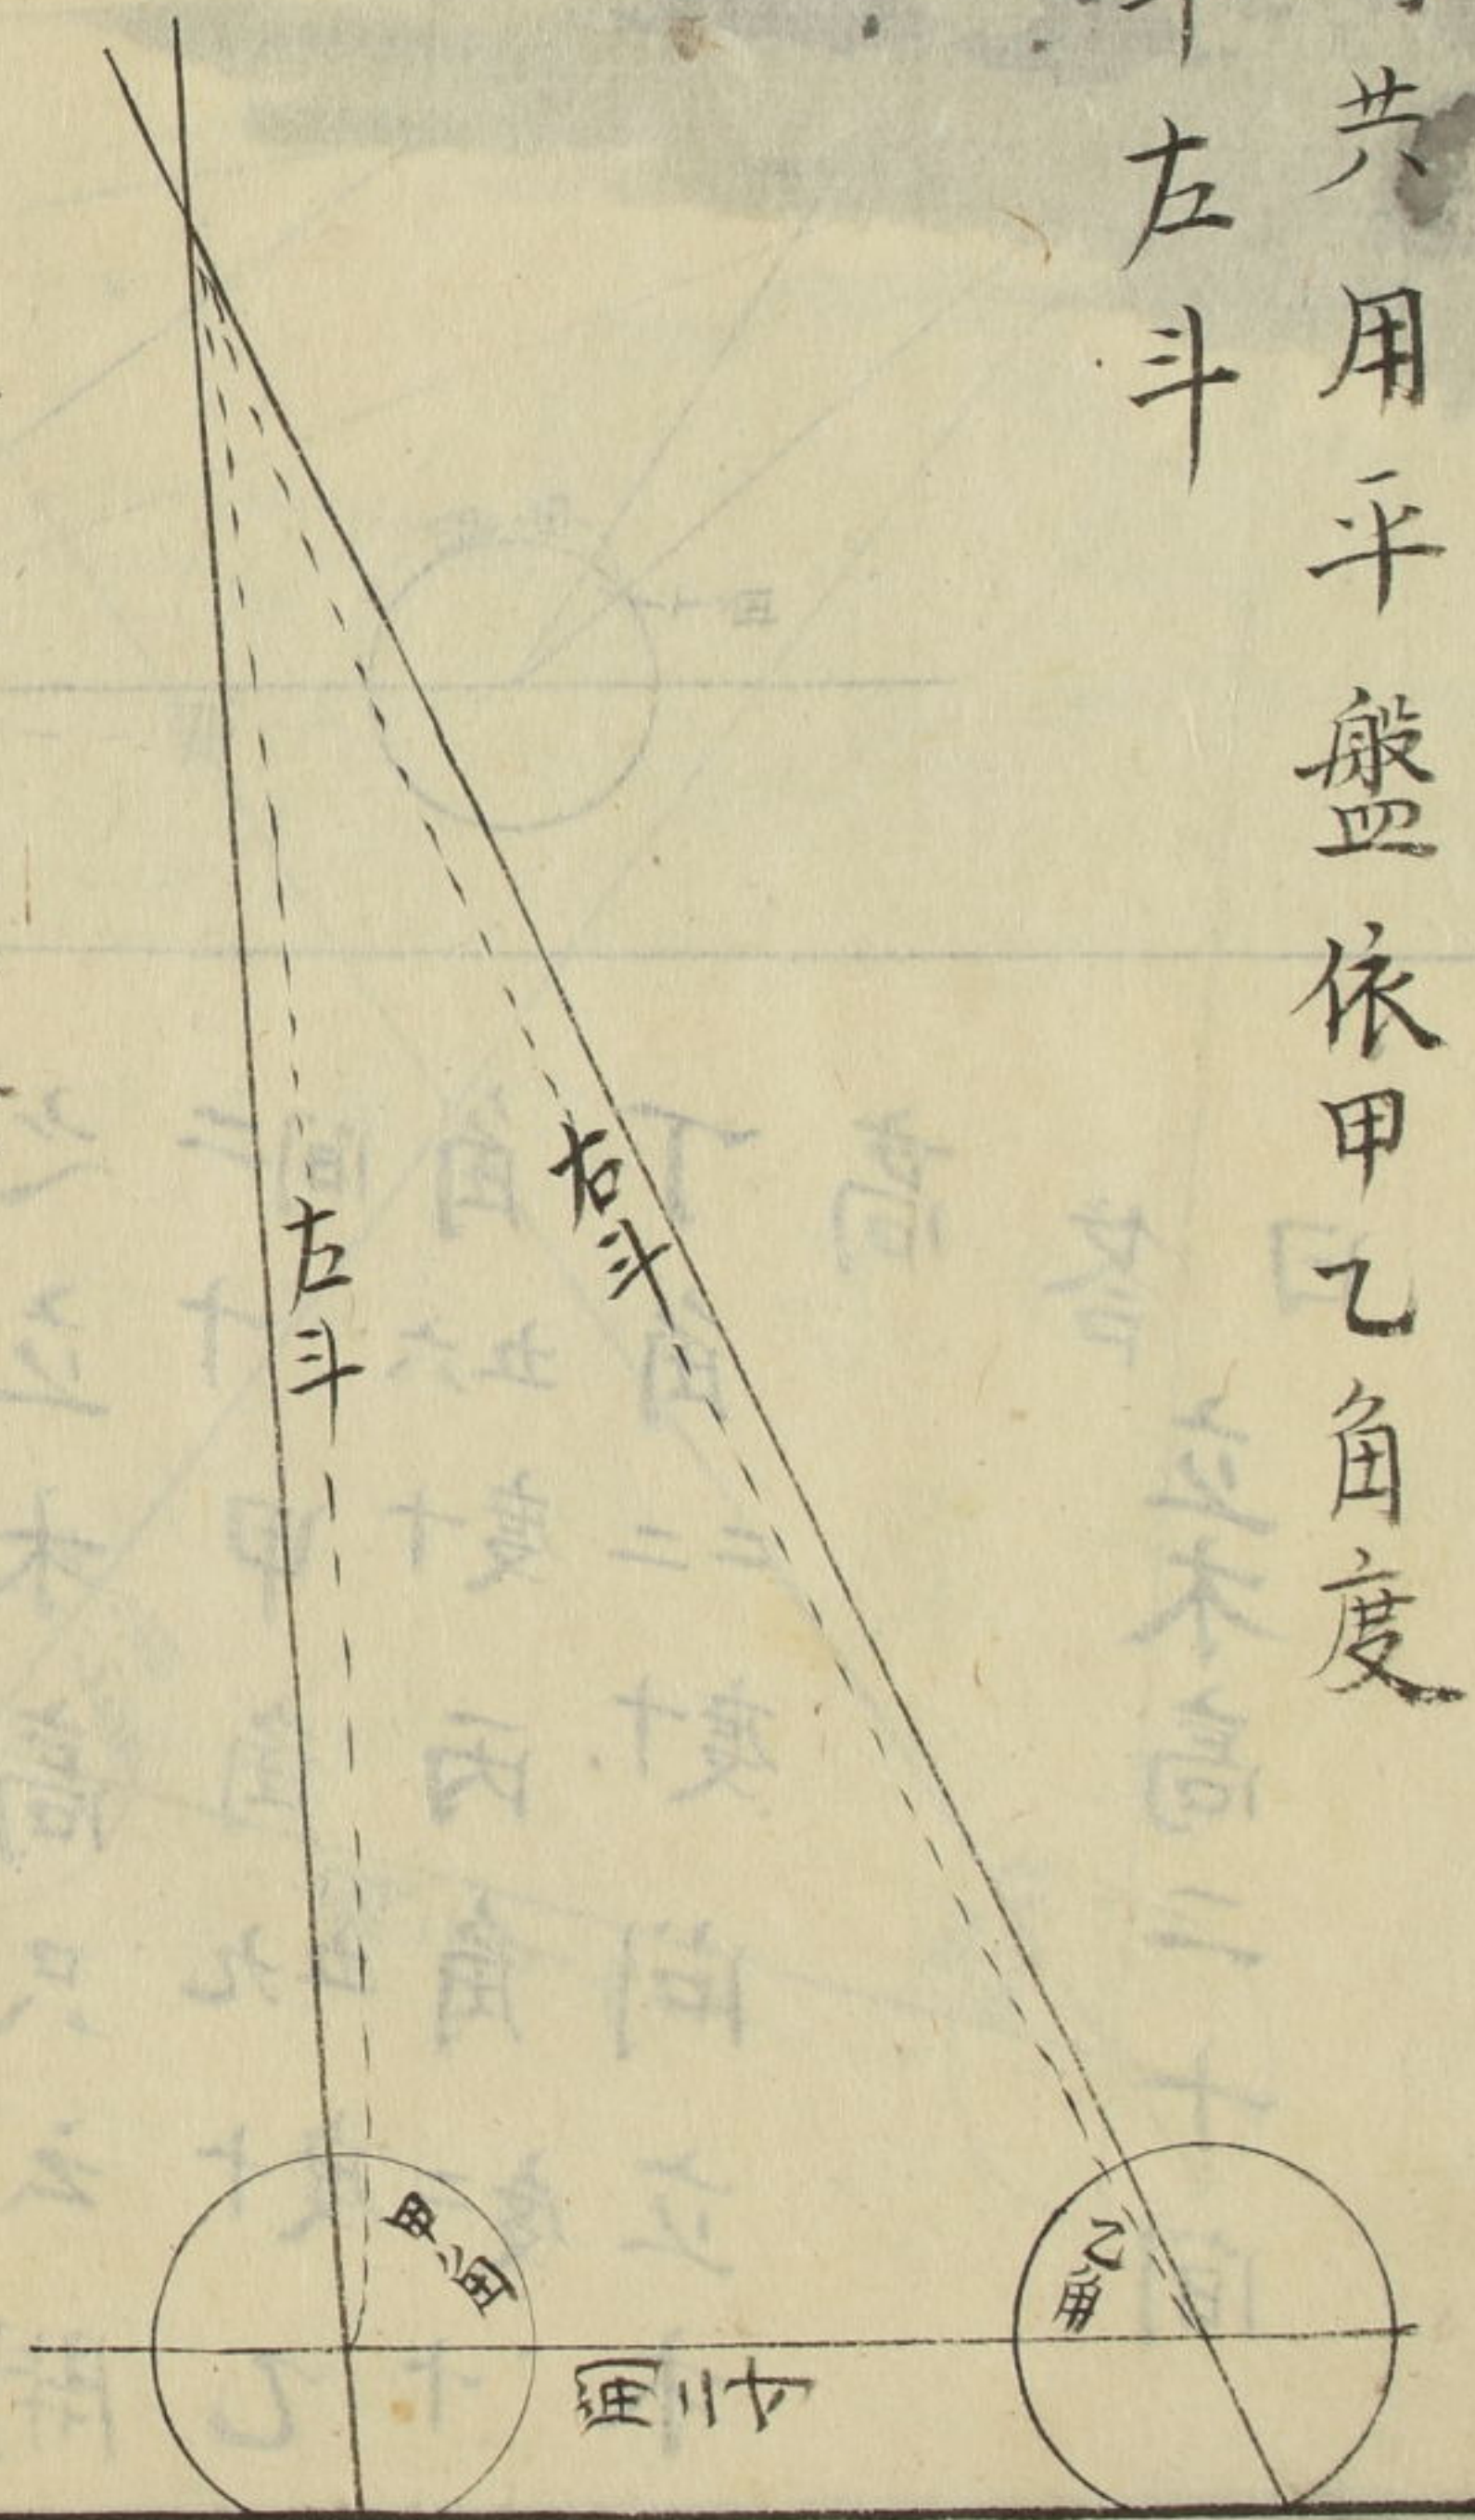 共用平盤依甲乙角度
左斗
右斗
左斗
甲角
乙角